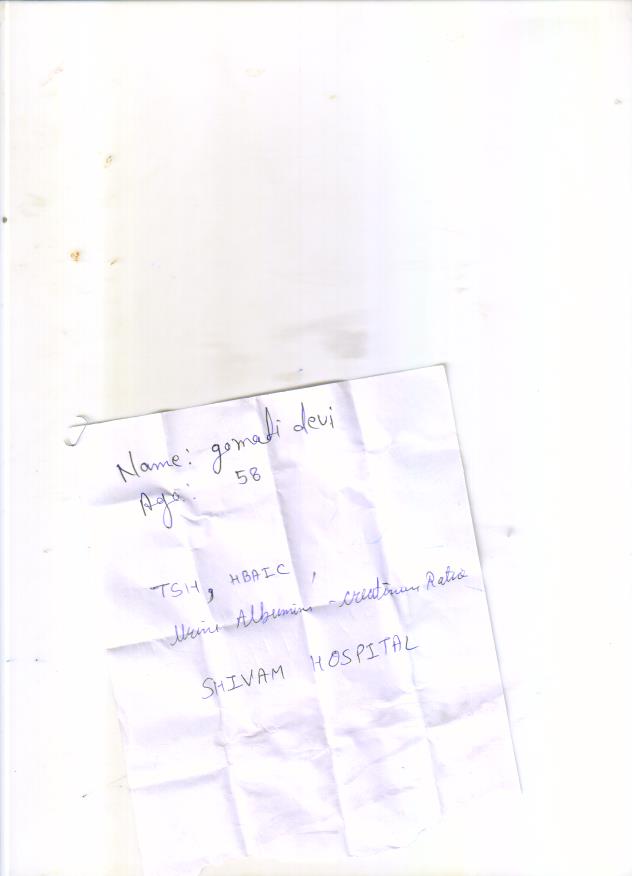 Name: gomati devi
Age: 58
TSH, HBAIC,
Urine Albumin - Creatinine Ratio
SHIVAM HOSPITAL